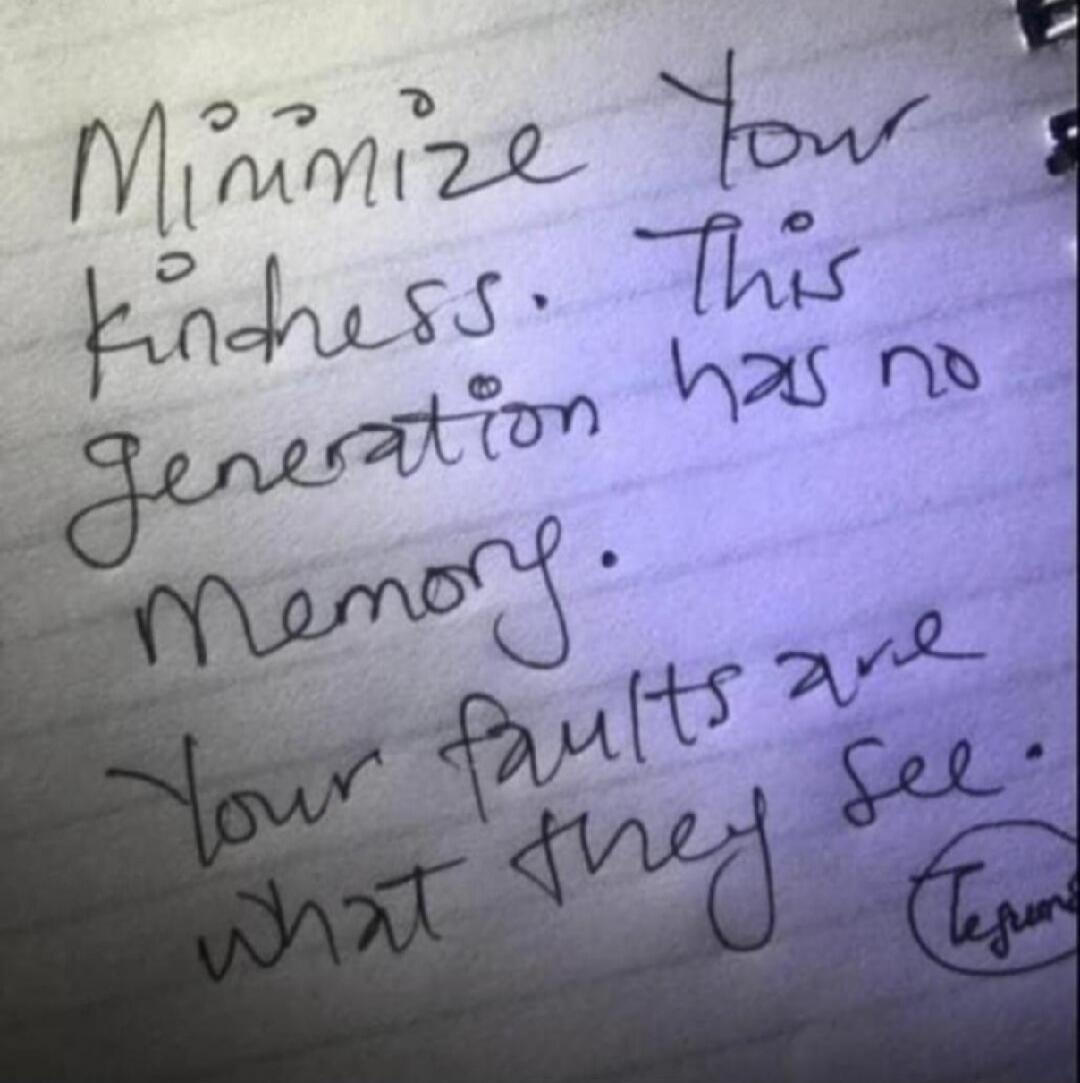 Minimize Your
kindness. This
generation has no
Memory.
Your faults are
what they see.